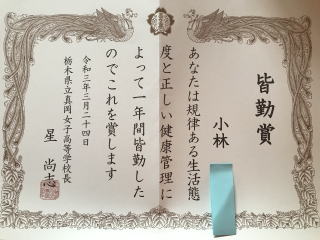 皆勤賞
小林
あなたは規律ある生活態
度と正しい健康管理に
よって一年間皆勤した
のでこれを賞します
令和三年三月二十四日
栃木県立真岡女子高等学校長
星 尚志